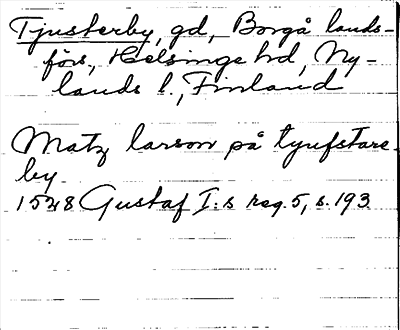 Tjusterby, gd, Borgå lands-
förs., Helsinge hd, Ny-
lands l., Finland
Matz larson på tyufstare
by
1528 Gustaf I:s reg. 5, s. 193